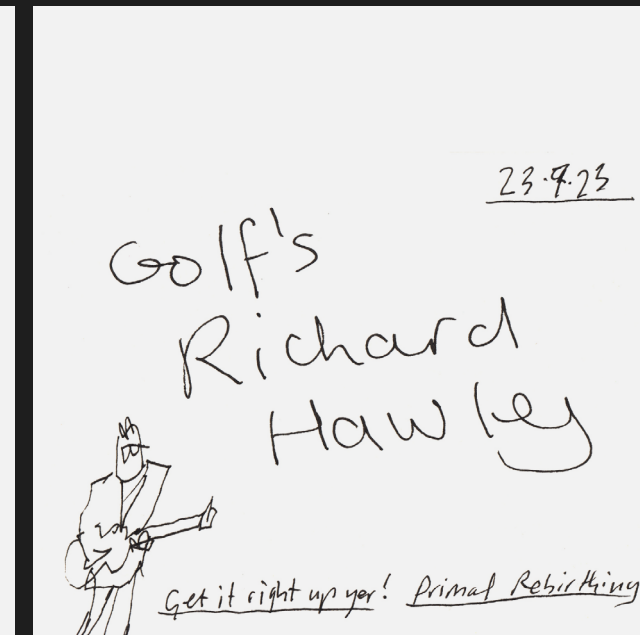 23.9.23
Golf's
Richard
Hawley
Get it right up yer! Primal Rebirthing